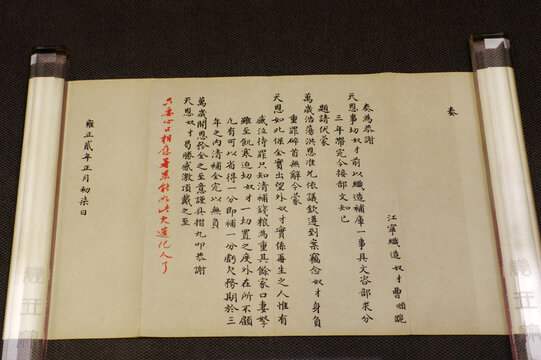 奏
江寧織造奴才曹頫跪
奏為恭謝
天恩事切奴才前以織造補庫一事具文咨部求分
三年帶完今接部文知已
題請伏蒙
萬歲浩蕩洪恩准允依議欽遵到案竊念奴才身負
重罪碎首無辭今蒙
天恩如此保全實出望外奴才實係再生之人惟有
感泣待罪只知清補錢糧為重其餘家口妻孥
雖至飢寒迫切奴才一切置之度外在所不顧
凡有可以省得一分即補一分虧欠務期於三
年之內清補全完以無負
萬歲開恩矜全之至意謹具摺九叩恭謝
天恩奴才曷勝感激頂戴之至
只要心口相應若果能如此大造化人了
雍正貳年正月初柒日